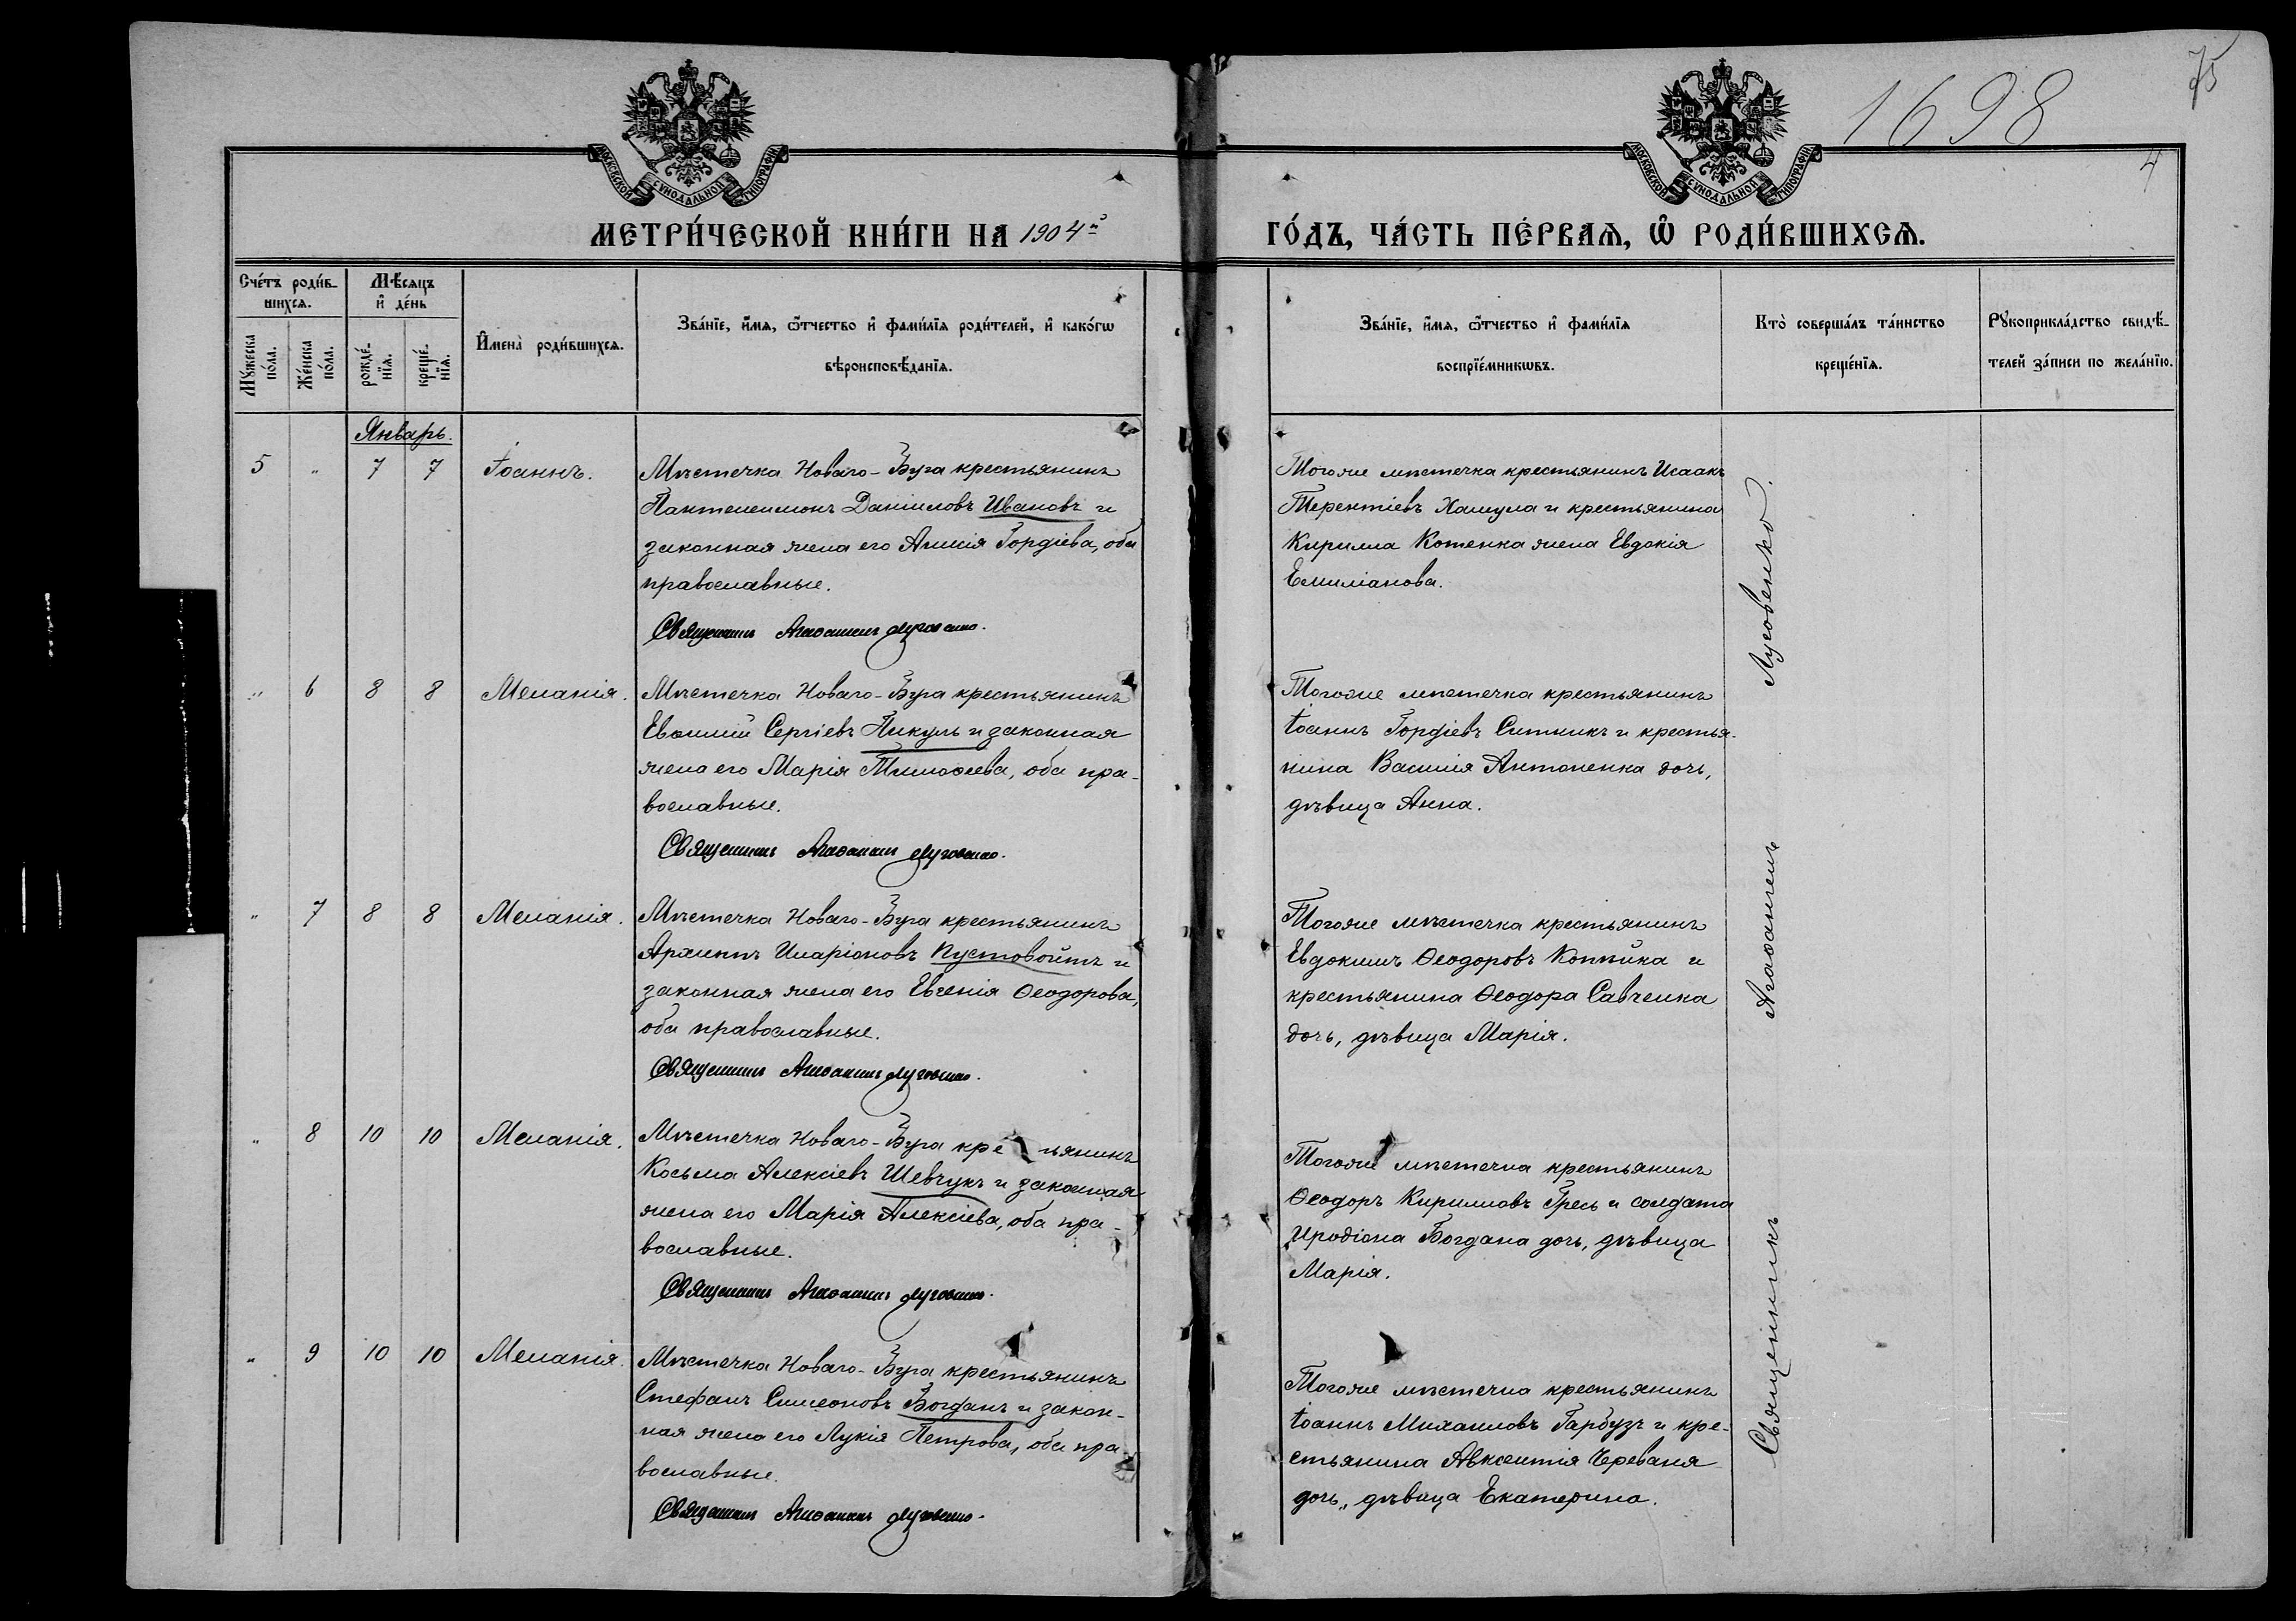 1698
75
4
МОСКОВСКОЙ СѴНОДАЛЬНОЙ ТИПОГРАФІИ
МОСКОВСКОЙ СѴНОДАЛЬНОЙ ТИПОГРАФІИ
МЕТРИ́ЧЕСКОЙ КНИ́ГИ НА 1904й
ГО́ДЪ, ЧА́СТЬ ПЕ́РВАѦ, Ѽ РОДИ́ВШИХСѦ.
Сче́тъ роди́в-
шихсѧ.
Мꙋ́жеска по́ла.
Же́нска по́ла.
Мѣ́сѧцъ
и҆ де́нь
рожде́-
нїѧ.
креще́-
нїѧ.
И҆мена̀ роди́вшихсѧ.
Зва́нїе, и҆́мѧ, ѻ҆́тчество и҆ фами́лїѧ роди́телей, и҆ како́гѡ
вѣроисповѣ́данїѧ.
Зва́нїе, и҆́мѧ, ѻ҆́тчество и҆ фами́лїѧ
воспрїе́мникѡвъ.
Кто̀ соверша́лъ та́инство
креще́нїѧ.
Рꙋкоприкла́дство свидѣ́-
телей за́писи по жела́нїю.
Январь.
5 " 7 7 Іоаннъ.
Мѣстечка Новаго-Буга крестьянинъ
Пантелеимонъ Даніиловъ Ивановъ и
законная жена его Агнія Гордіева, оба
православные.
Священникъ Агаѳангелъ Луговенко.
Тогоже мѣстечка крестьянинъ Исаакъ
Терентіевъ Хамула и крестьянина
Кирилла Котенка жена Евдокія
Емиліанова.
" 6 8 8 Меланія.
Мѣстечка Новаго-Буга крестьянинъ
Евѳимій Сергіевъ Пикуль и законная
жена его Марія Тимоѳеева, оба пра-
вославные.
Священникъ Агаѳангелъ Луговенко.
Тогоже мѣстечка крестьянинъ
Іоаннъ Гордіевъ Ситникъ и крестья-
нина Василія Антоненка дочь,
дѣвица Анна.
" 7 8 8 Меланія.
Мѣстечка Новаго-Буга крестьянинъ
Архиппъ Иларіоновъ Пустовойтъ и
законная жена его Евгенія Ѳеодорова,
оба православные.
Священникъ Агаѳангелъ Луговенко.
Тогоже мѣстечка крестьянинъ
Евдокимъ Ѳеодоровъ Коппийка и
крестьянина Ѳеодора Савченка
дочь, дѣвица Марія.
" 8 10 10 Меланія.
Мѣстечка Новаго-Буга кре ьянинъ
Косьма Алексіевъ Шевчукъ и законная
жена его Марія Алексіева, оба пра-
вославные.
Священникъ Агаѳангелъ Луговенко.
Тогоже мѣстечка крестьянинъ
Ѳеодоръ Кирилловъ Гресь и солдата
Иродіона Богдана дочь, дѣвица
Марія.
" 9 10 10 Меланія.
Мѣстечка Новаго-Буга крестьянинъ
Стефанъ Симеоновъ Богданъ и закон-
ная жена его Лукія Петрова, оба пра-
вославные.
Священникъ Агаѳангелъ Луговенко.
Тогоже мѣстечка крестьянинъ
Іоаннъ Михаиловъ Гарбузъ и кре-
стьянина Авксентія Череваня
дочь, дѣвица Екатерина.
Священникъ Агаѳангелъ Луговенко.